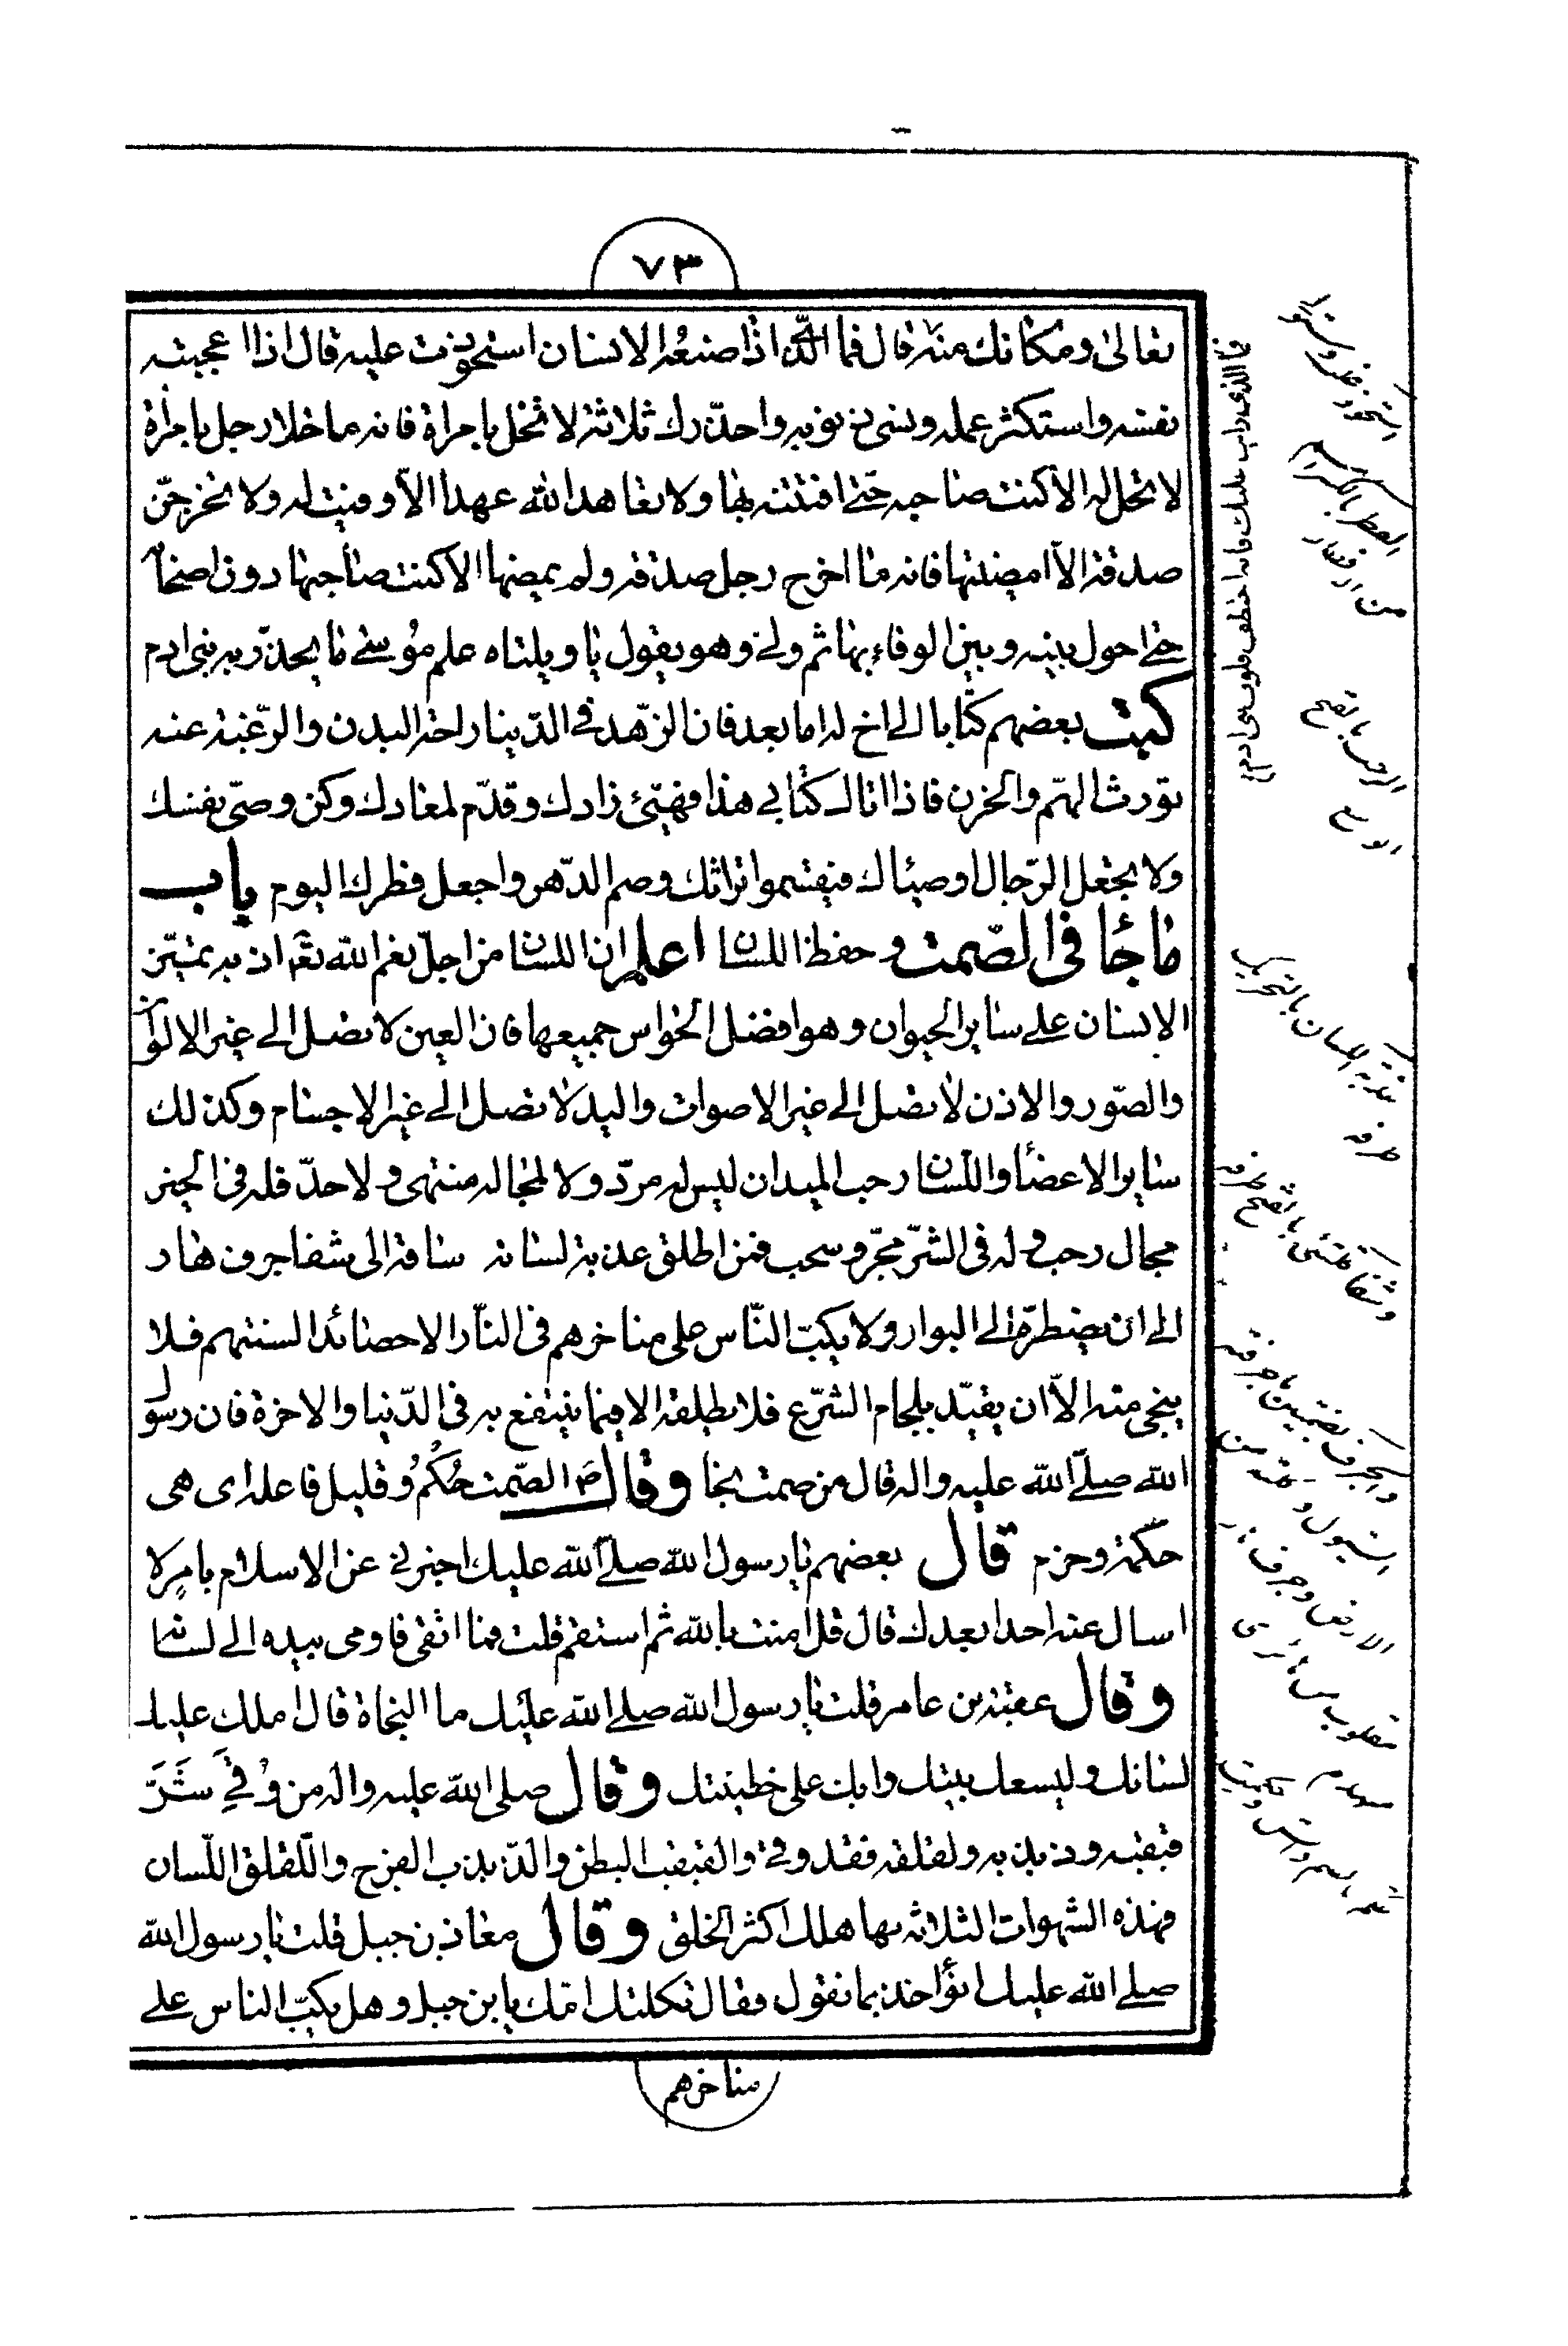 ٧٣
تعالى ومكانك منه قال فما الذى اذا صنعه الانسان استحوذت عليه قال اذا اعجبته
نفسه واستكثر عمله ونسى ذنوبه واحذرك ثلاثة لا تخل بامراة فانه ما خلا رجل بامراة
لا تحل له الا كنت صاحبه حتى افتتنه بها ولا تعاهد الله عهدا الا وفيت له ولا تخرجن
صدقة الا امضيتها فانه ما اخرج رجل صدقة ولم يمضها الا كنت صاحبها دون اصحابى
حتى احول بينه وبين الوفاء بها ثم ولى وهو يقول يا ويلتاه علم موسى ما يحذر به بنى ادم
كتب بعضهم كتابا الى اخ له اما بعد فان الزهد فى الدنيا راحة البدن والرغبة عنه
تورث الهم والحزن فاذا اتاك كتابى هذا فهيئ زادك وقدم لمعادك وكن وصى نفسك
ولا تجعل الرجال اوصياك فيقتسموا تراثك وصم الدهر واجعل فطرك اليوم باب
ما جاء فى الصمت وحفظ اللسان اعلم ان اللسان من اجل نعم الله تعم اذ به يتميز
الانسان على ساير الحيوان وهو افضل الحواس جميعها فان العين لا تصل الى غير الالوان
والصور والاذن لا تصل الى غير الاصوات واليد لا تصل الى غير الاجسام وكذلك
ساير الاعضاء واللسان رحب الميدان ليس له مرد ولا لمجاله منتهى ولا حد فله فى الخير
مجال رحب وله فى الشر مجر وسحب فمن اطلق عذبة لسانه ساقه الى شفا جرف هار
الى ان يضطره الى البوار ولا يكب الناس على مناخرهم فى النار الا حصائد السنتهم فلا
ينجى منه الا ان يقيد بلجام الشرع فلا يطلقه الا فيما ينتفع به فى الدنيا والاخرة فان رسول
الله صلى الله عليه واله قال من صمت نجا وقال ص الصمت حُكمٌ وقليل فاعله اى هى
حكمة وحزم قال بعضهم يا رسول الله صلى الله عليك اخبرنى عن الاسلام بامر لا
اسال عنه احدا بعدك قال قل امنت بالله ثم استقم قلت فما اتقى فاومى بيده الى لسانه
وقال عقبة بن عامر قلت يا رسول الله صلى الله عليك ما النجاة قال املك عليك
لسانك وليسعك بيتك وابك على خطيئتك وقال صلى الله عليه واله من وُقىَ شَرَّ
قبقبه وذبذبه ولقلقه فقد وقى والقبقب البطن والذبذب الفرج واللقلق اللسان
فهذه الشهوات الثلاثه بها هلك اكثر الخلق وقال معاذ بن جبل قلت يا رسول الله
صلى الله عليك انؤاخذ بما نقول فقال ثكلتك امك يابن جبل وهل يكب الناس على
مناخرهم